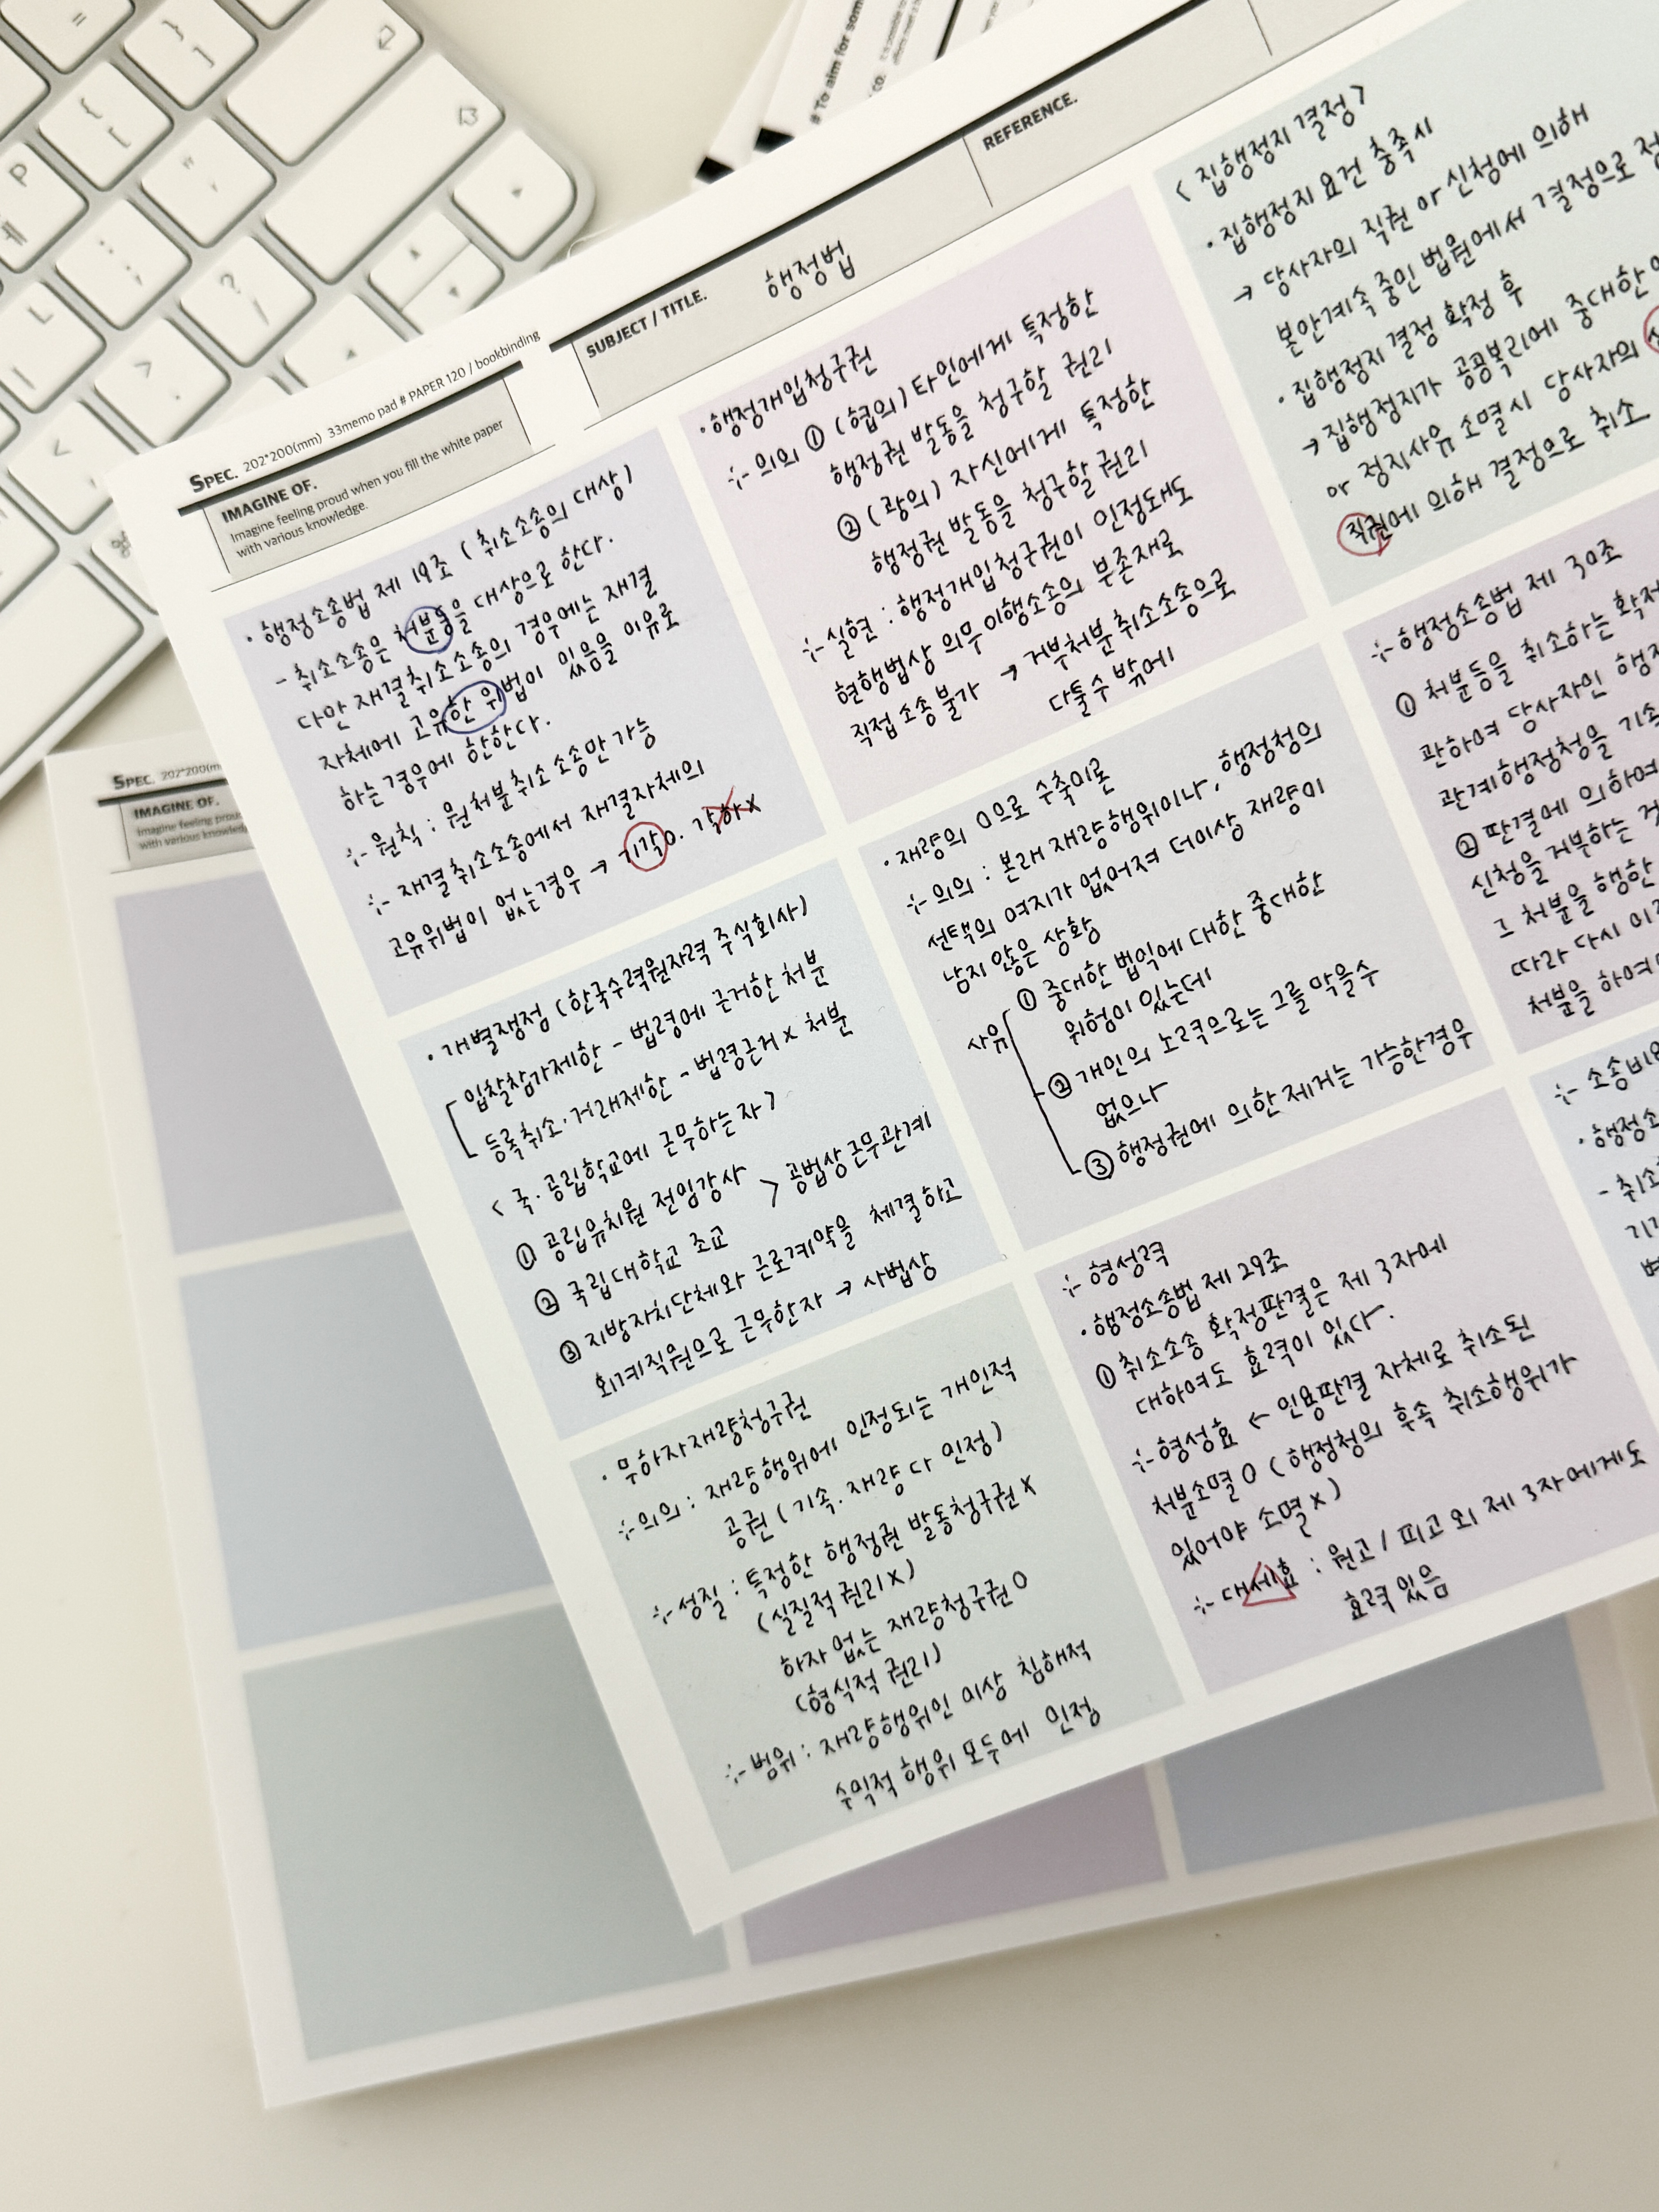 # To aim for som
SPEC. 202*200(mm) 33memo pad # PAPER 120 / bookbinding
IMAGINE OF.
Imagine feeling proud when you fill the white paper
with various knowledge.
SUBJECT / TITLE. 행정법
REFERENCE.
· 행정소송법 제 19조 (취소소송의 대상)
- 취소소송은 처분등을 대상으로 한다.
다만 재결취소소송의 경우에는 재결
자체에 고유한 위법이 있음을 이유로
하는 경우에 한한다.
원칙 : 원처분취소소송만 가능
재결취소소송에서 재결자체의
고유위법이 없는경우 → 기각O. 각하x
· 행정개입청구권
의의 ① (협의) 타인에게 특정한
행정권 발동을 청구할 권리
② (광의) 자신에게 특정한
행정권 발동을 청구할 권리
실현 : 행정개입청구권이 인정돼도
현행법상 의무이행소송의 부존재로
직접 소송불가 → 거부처분취소소송으로
다툴수 밖에
< 집행정지 결정 >
· 집행정지 요건 충족시
→ 당사자의 직권 or 신청에 의해
본안계속 중인 법원에서 결정으로
· 집행정지 결정 확정 후
→ 집행정지가 공공복리에 중대한
or 정지사유 소멸시 당사자의
직권에 의해 결정으로 취소
· 개별쟁점 (한국수력원자력 주식회사)
입찰참가제한 - 법령에 근거한 처분
등록취소·거래제한 - 법령근거 x 처분
< 국·공립학교에 근무하는자 >
① 공립유치원 전임강사
② 국립대학교 조교 > 공법상근무관계
③ 지방자치단체와 근로계약을 체결하고
회계직원으로 근무한자 → 사법상
· 재량의 0으로 수축이론
의의 : 본래 재량행위이나, 행정청의
선택의 여지가 없어져 더이상 재량이
남지 않은 상황
사유 ① 중대한 법익에 대한 중대한
위험이 있는데
② 개인의 노력으로는 그를 막을수
없으나
③ 행정권에 의한 제거는 가능한경우
행정소송법 제 30조
① 처분등을 취소하는
관하여 당사자인
관계행정청을
② 판결에 의하여
신청을 거부하는
그 처분을 행한
따라 다시
처분을 하여야
· 무하자재량청구권
의의 : 재량행위에 인정되는 개인적
공권 (기속·재량 다 인정)
성질 : 특정한 행정권 발동청구권 x
(실질적 권리 x)
하자 없는 재량청구권 O
(형식적 권리)
범위 : 재량행위인 이상 침해적
수익적 행위 모두에 인정
형성력
· 행정소송법 제 29조
① 취소소송 확정판결은 제 3자에
대하여도 효력이 있다.
형성효 ← 인용판결 자체로 취소된
처분소멸 O (행정청의 후속 취소행위가
있어야 소멸 x)
대세효 : 원고 / 피고 외 제 3자에게도
효력 있음
SPEC. 202*200(m
IMAGINE OF.